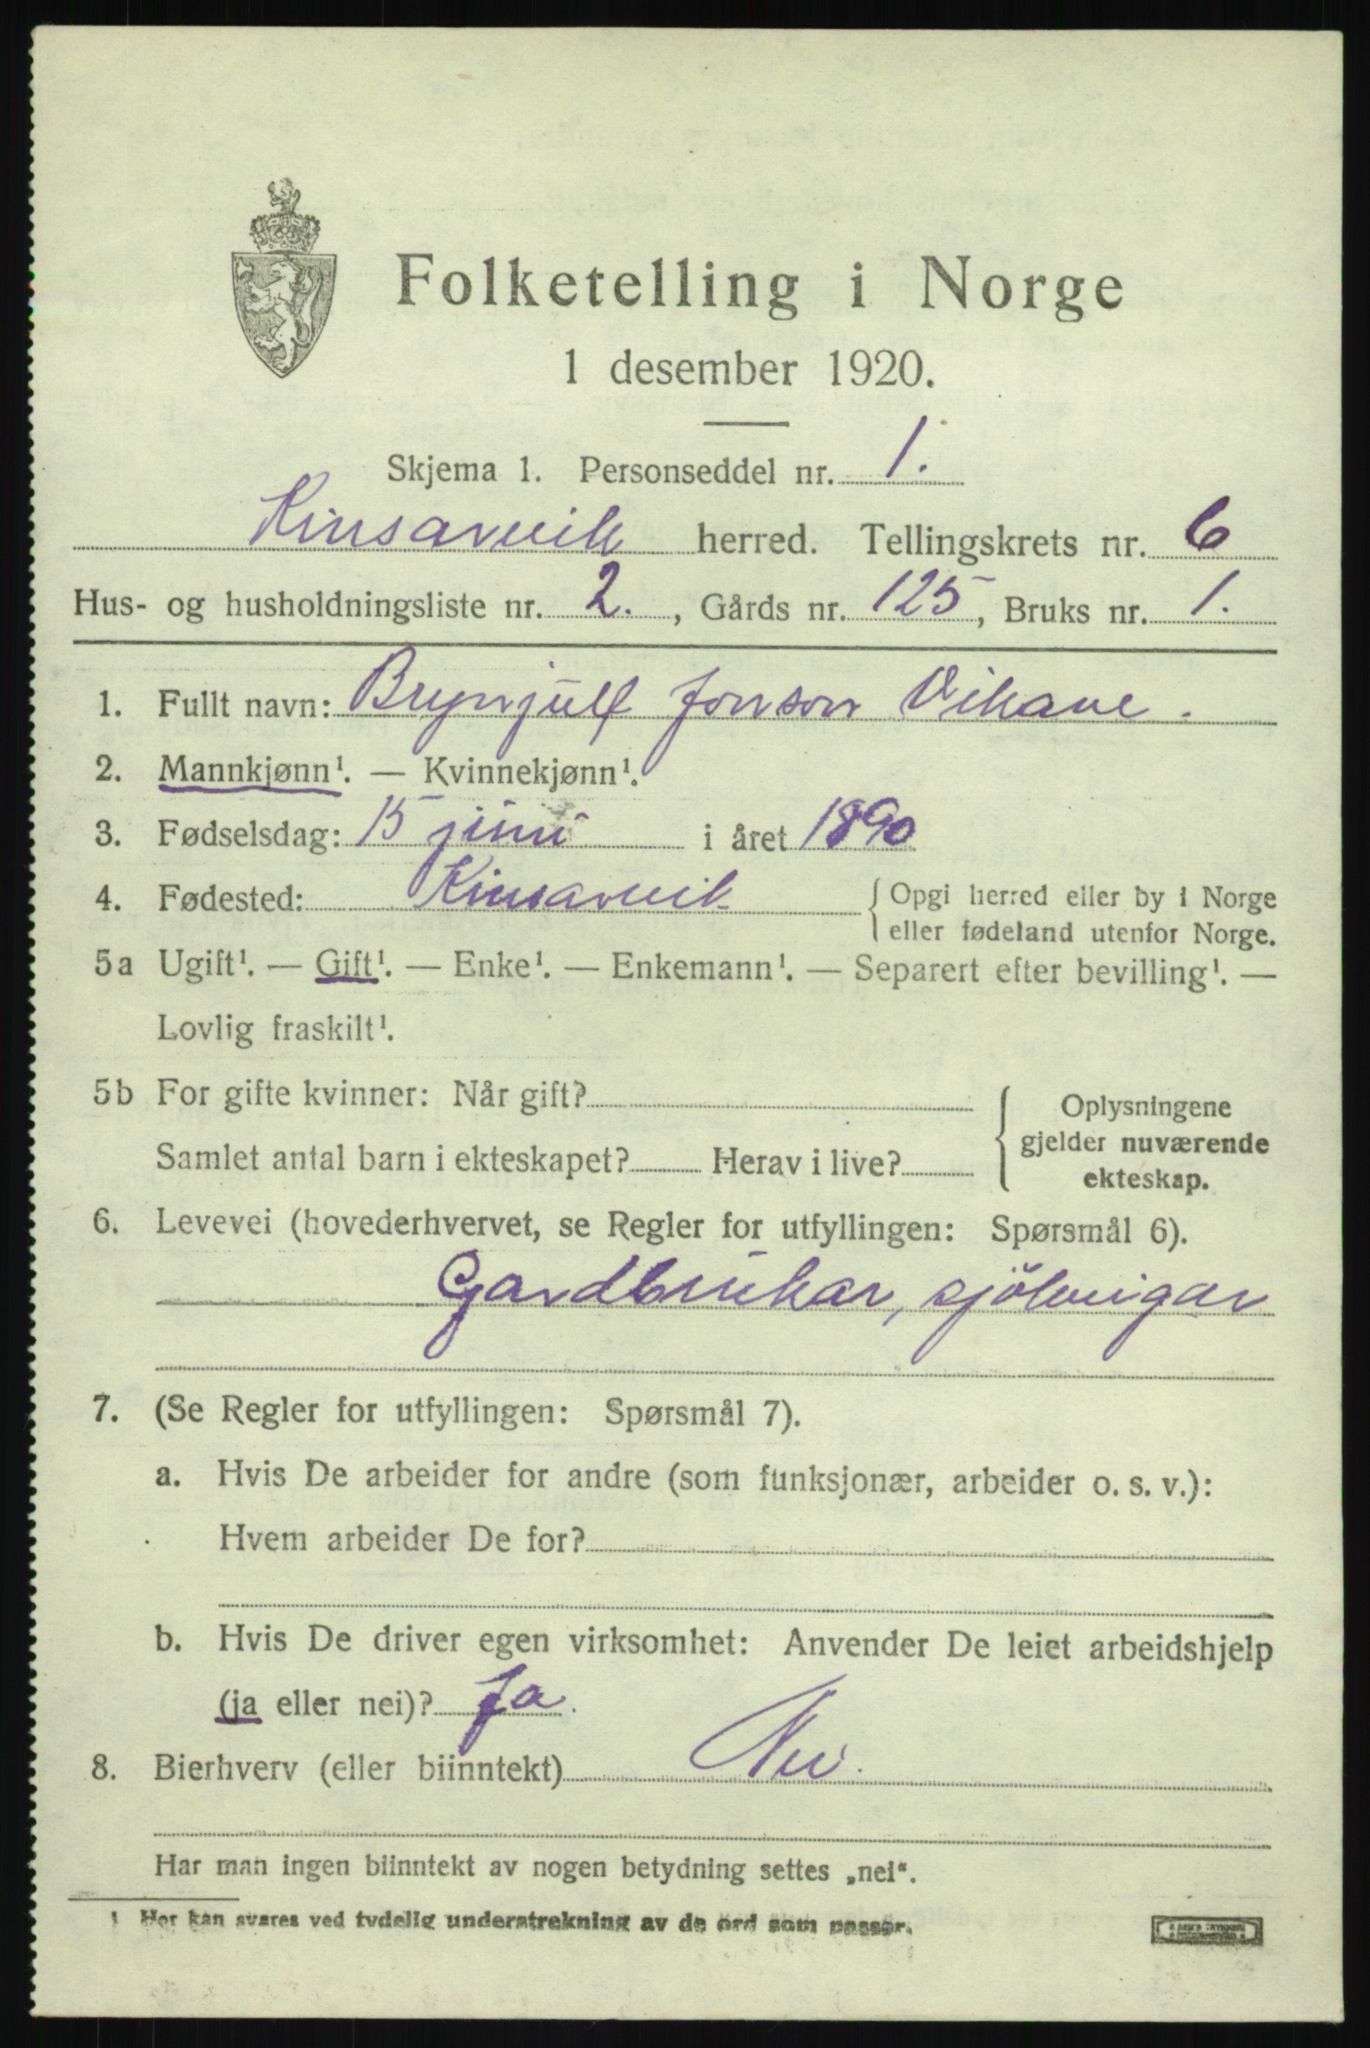 Folketelling i Norge
1 desember 1920.
Skjema 1. Personseddel nr. 1.
Kinsarvik herred. Tellingskrets nr. 6
Hus- og husholdningsliste nr. 2., Gårds nr. 125, Bruks nr. 1.
1. Fullt navn: Brynjulf Jonson Vikane.
2. Mannkjønn¹. — Kvinnekjønn¹.
3. Fødselsdag: 15 juni i året 1890
4. Fødested: Kinsarvik { Opgi herred eller by i Norge
eller fødeland utenfor Norge.
5a Ugift¹. — Gift¹. — Enke¹. — Enkemann¹. — Separert efter bevilling¹. —
Lovlig fraskilt¹.
5b For gifte kvinner: Når gift?
Samlet antal barn i ekteskapet? Herav i live?
Oplysningene
gjelder nuværende
ekteskap.
6. Levevei (hovederhvervet, se Regler for utfyllingen: Spørsmål 6).
Gardbrukar, sjöleigar
7. (Se Regler for utfyllingen: Spørsmål 7).
a. Hvis De arbeider for andre (som funksjonær, arbeider o. s. v.):
Hvem arbeider De for?
b. Hvis De driver egen virksomhet: Anvender De leiet arbeidshjelp
(ja eller nei)? Ja.
8. Bierhverv (eller biinntekt) Nei.
Har man ingen biinntekt av nogen betydning settes „nei“.
1 Her kan svares ved tydelig understrekning av de ord som passer.